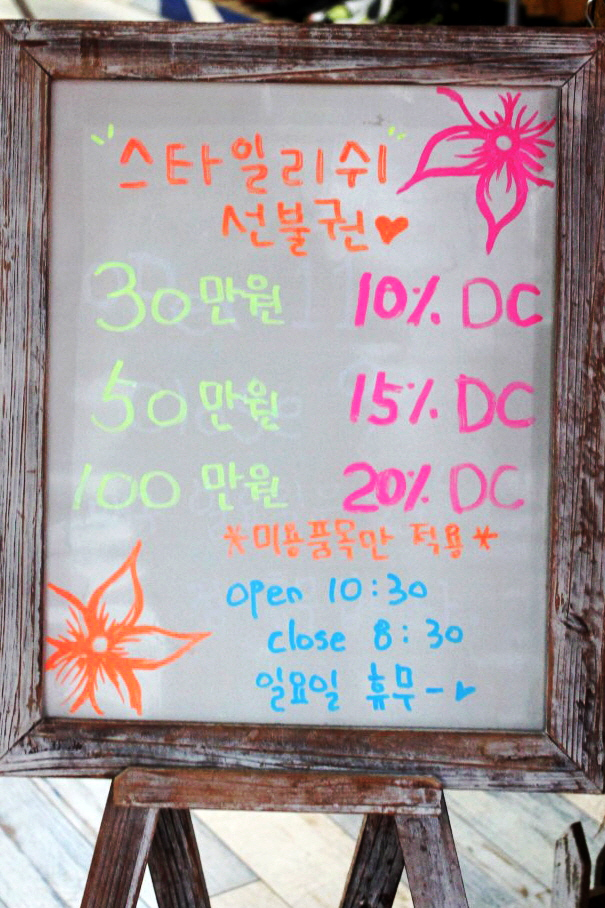 "스타일리쉬"
선불권♥
30만원 10% DC
50만원 15% DC
100만원 20% DC
*미용품목만 적용*
open 10:30
close 8:30
일요일 휴무-♥